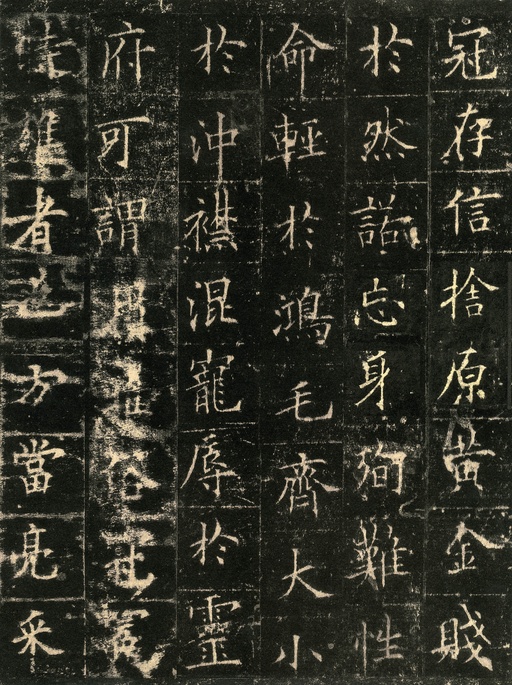 冠存信捨原黄金賤
於然諾忘身殉難性
命輕於鴻毛齊大小
於沖襟混寵辱於靈
府可謂
者也方當亮采